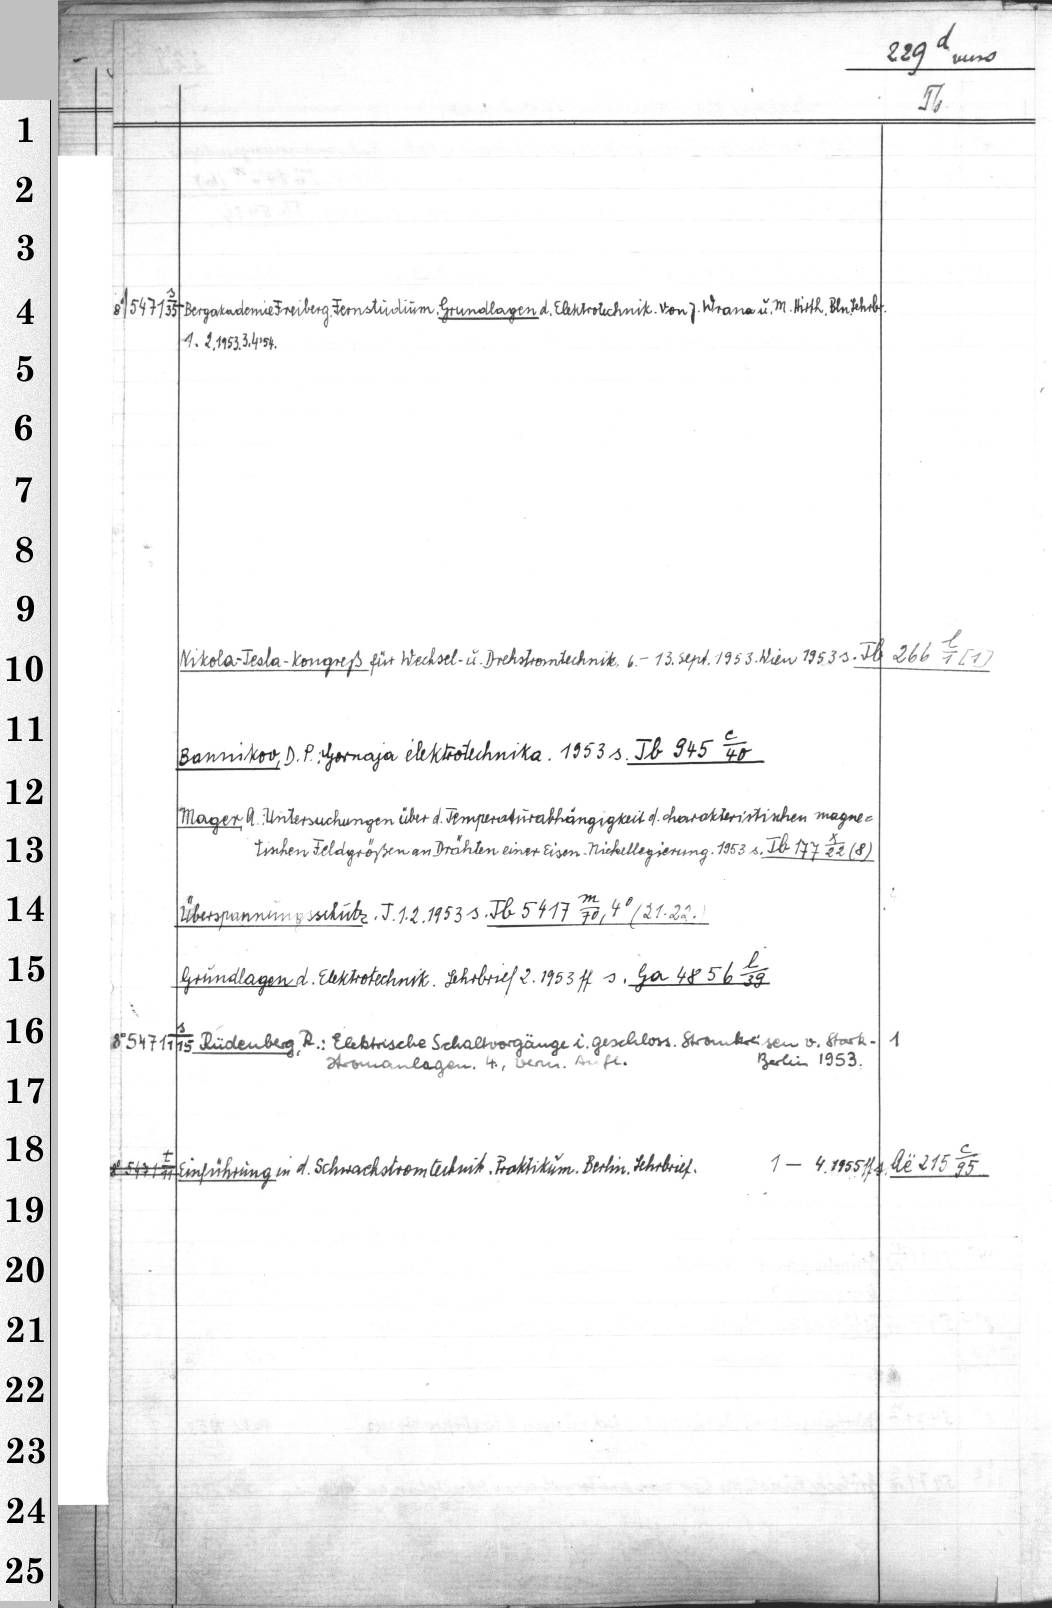 229 d verso
Tb
1
2
3
4 8° 5471 s/35 Bergakademie Freiberg. Fernstudium. Grundlagen d. Elektrotechnik. Von J. Wrana u. M. Hirth. Bln. Lehrbr.
1. 2. 1953. 3. 4. '54.
5
6
7
8
9
10 Nikola-Tesla-Kongreß für Wechsel- u. Drehstromtechnik. 6.-13. Sept. 1953. Wien 1953 s. Tb 266 l/1 [1]
11 Bannikov, D. P.: Gornaja elektrotechnika. 1953 s. Tb 945 c/40
12 Mager, A.: Untersuchungen über d. Temperaturabhängigkeit d. charakteristischen magne=
13 tischen Feldgrößen an Drähten einer Eisen-Nickellegierung. 1953 s. Tb 177 x/22 (8)
14 Überspannungsschutz. T. 1.2. 1953 s. Tb 5417 m/70, 4° (21.22.)
15 Grundlagen d. Elektrotechnik. Lehrbrief 2. 1953 ff s. Ga 4856 l/39
16 8° 5471 s/115 Rüdenberg, R.: Elektrische Schaltvorgänge i. geschloss. Stromkreisen v. Stark- 1
stromanlagen. 4., verm. Aufl. Berlin 1953.
17
18 8° 5471 t/11 Einführung in d. Schwachstromtechnik. Praktikum. Berlin. Lehrbrief. 1 - 4. 1955 ff s. Aë 215 c/95
19
20
21
22
23
24
25